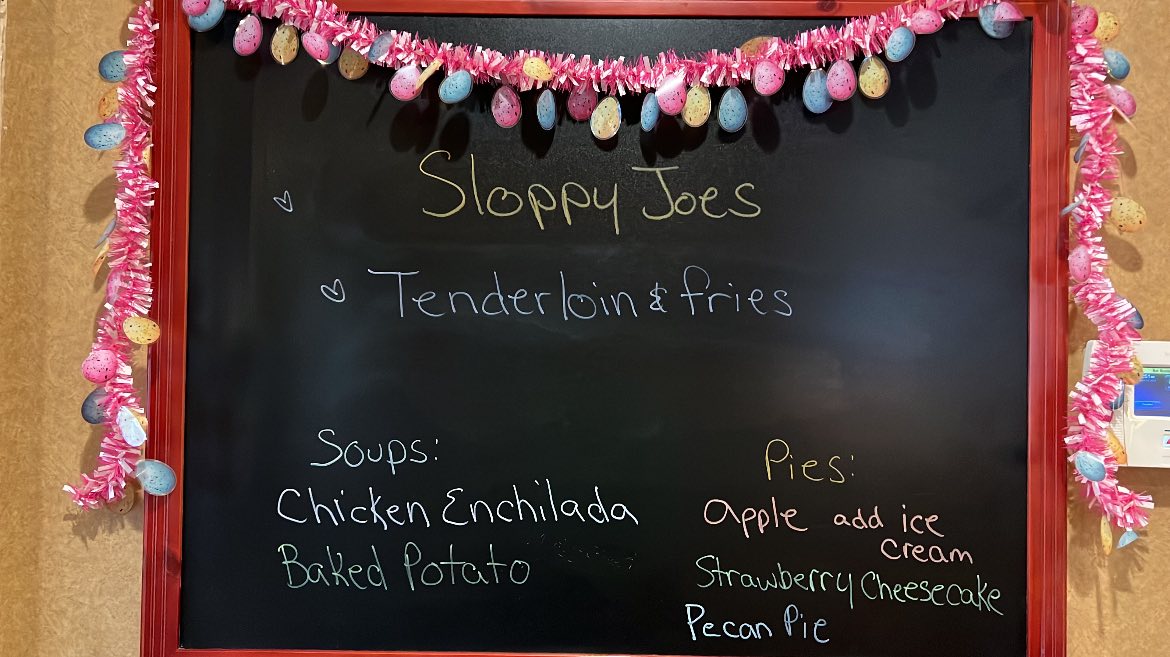 Sloppy Joes
Tenderloin & fries
Soups:
Chicken Enchilada
Baked Potato
Pies:
Apple add ice
cream
Strawberry Cheesecake
Pecan Pie